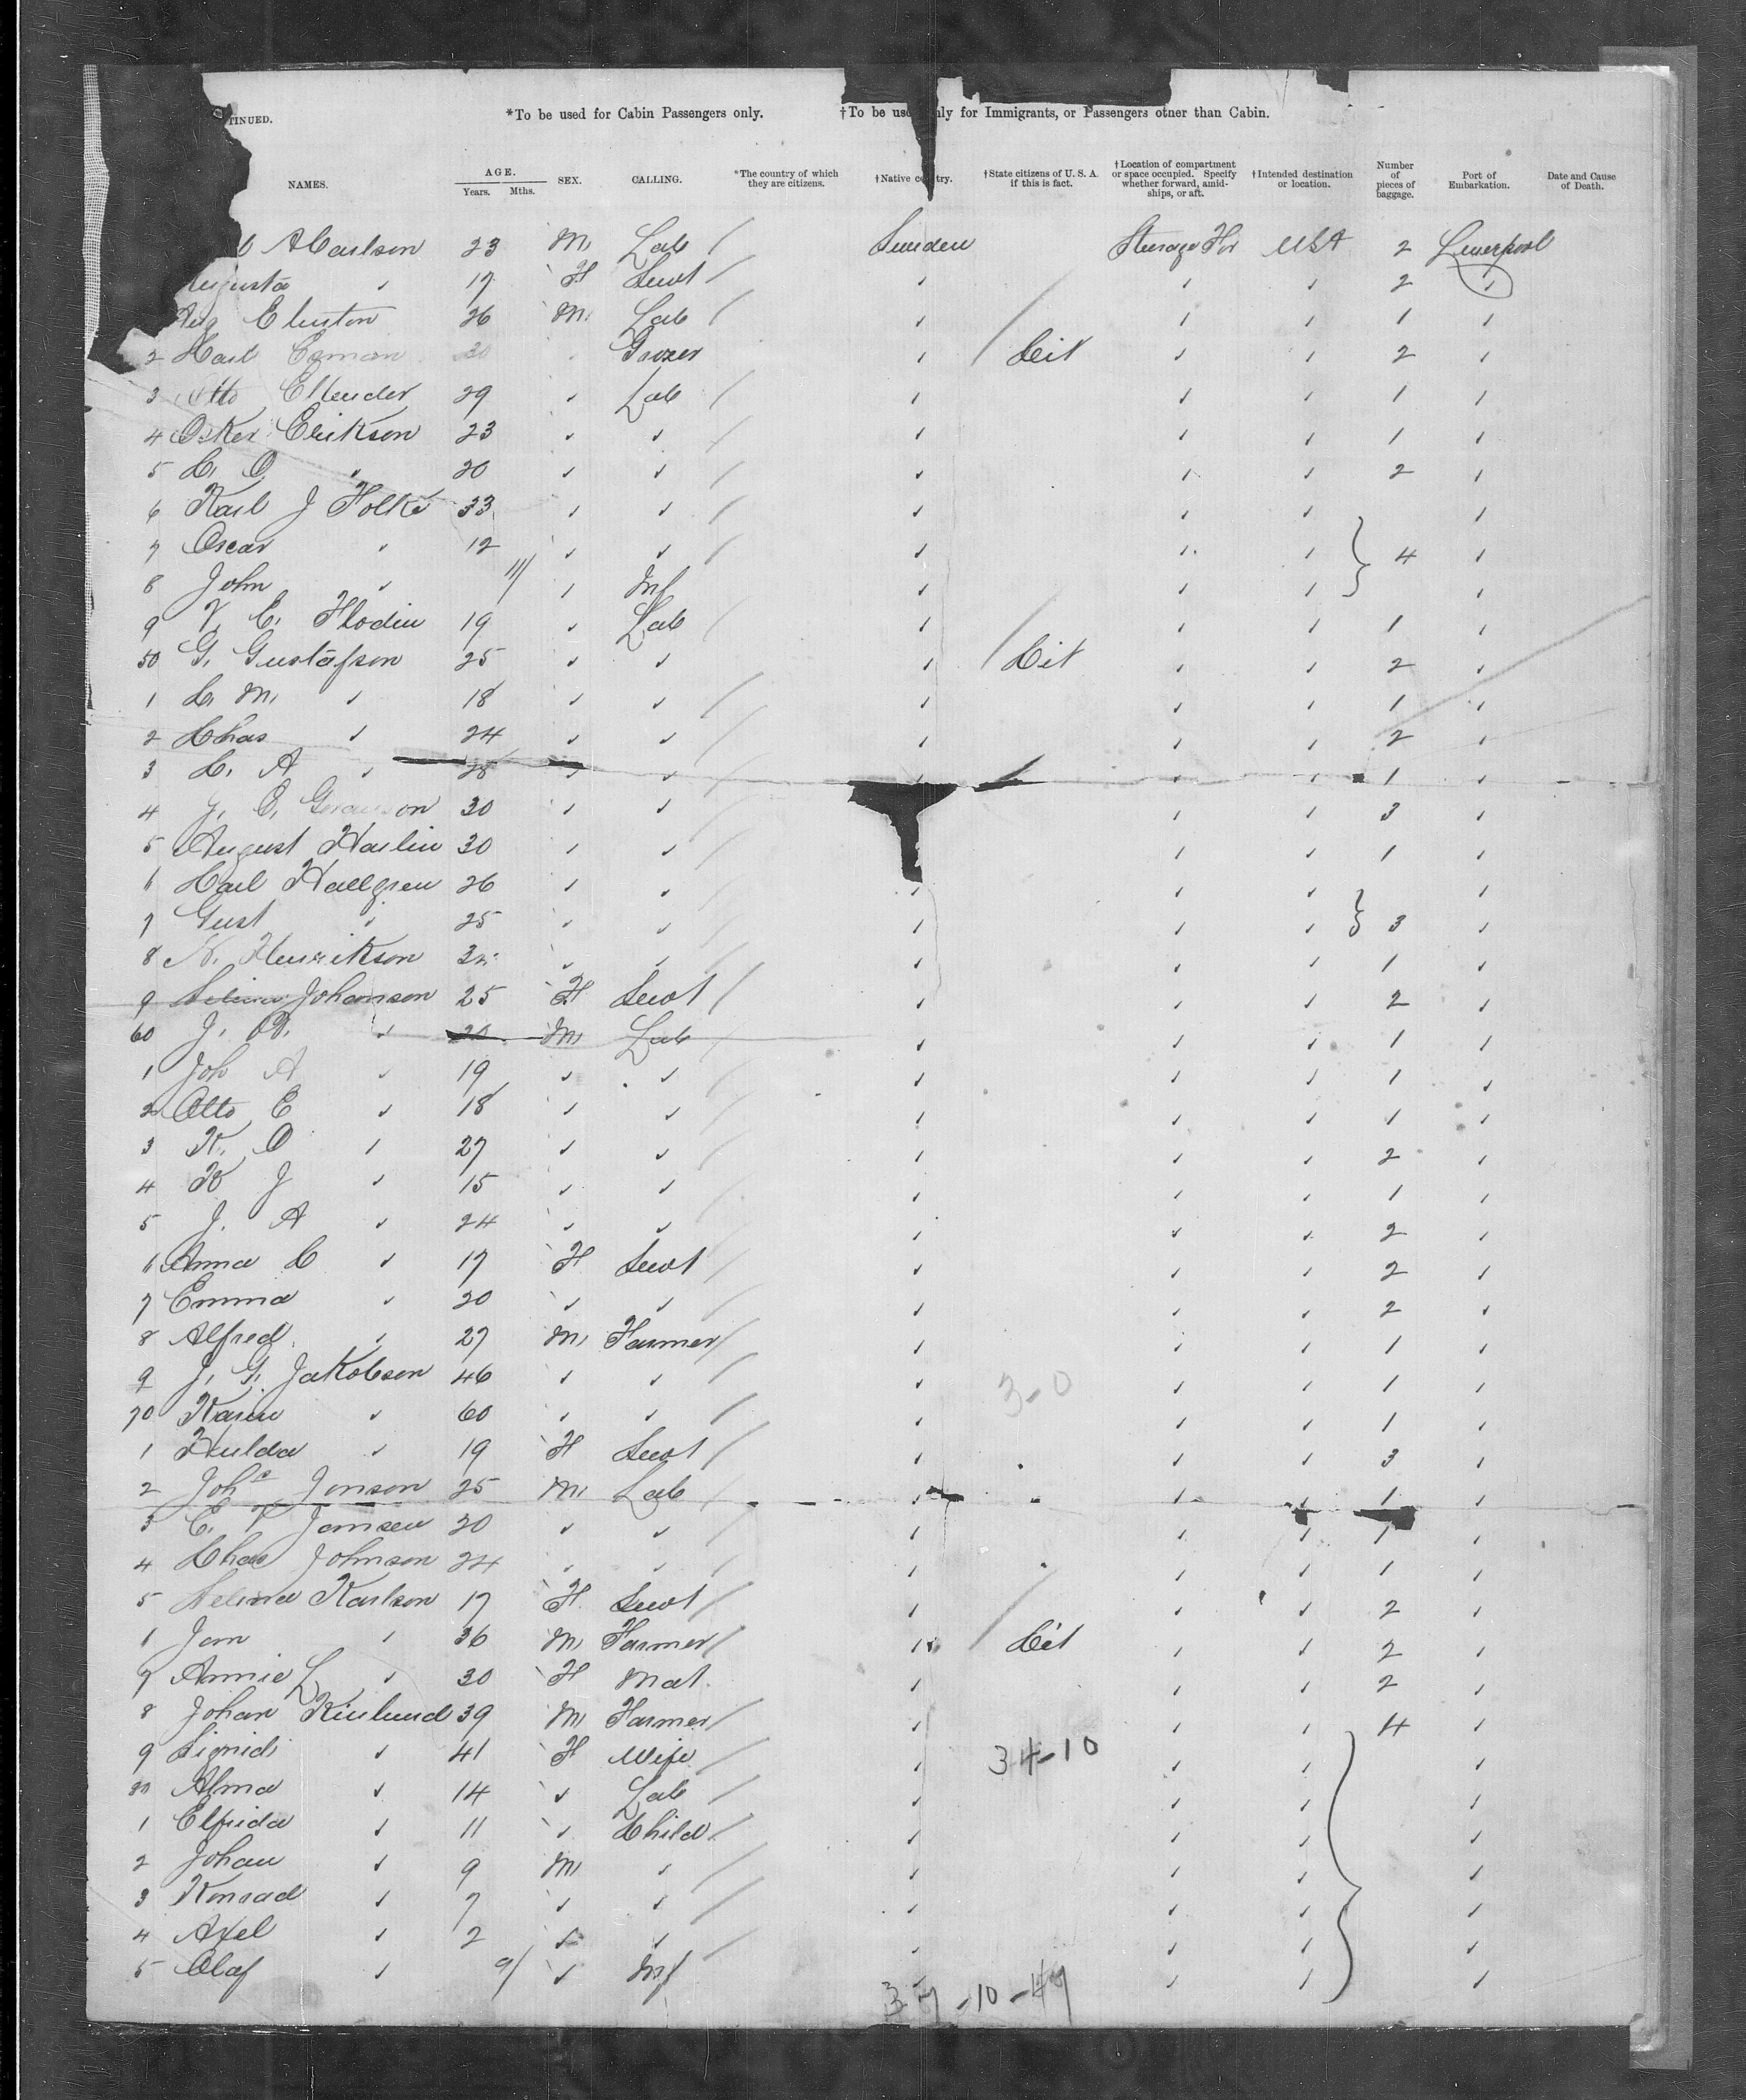 TINUED. *To be used for Cabin Passengers only. †To be use nly for Immigrants, or Passengers other than Cabin.
NAMES. AGE. Years. Mths. SEX. CALLING. *The country of which they are citizens. †Native co try. †State citizens of U. S. A. if this is fact. †Location of compartment or space occupied. Specify whether forward, amidships, or aft. †Intended destination or location. Number of pieces of baggage. Port of Embarkation. Date and Cause of Death.
A Carlson 23 M Lab / Sweden Steerage For USA 2 Liverpool
Augusta " 17 F Servt / " " " 2 "
Aug 26 M Lab / " " " 1 "
2 Carl 30 " Grocer " / Cit " " 2 "
3 Otto 29 " Lab / " " " 1 "
4 Osker Erikson 23 " " / " " " 1 "
5 C. O. " 20 " " / " " " 2 "
6 Karl J Folke 33 " " / " " " "
7 Oscar " 12 " " / " " " 4 "
8 John " 11/ " Inf " " " "
9 V. E. Flodin 19 " Lab / " " " 1 "
50 G. Gustafson 25 " " " / Cit " " 2 "
1 C. M. " 18 " " / " " " 1 "
2 Chas " 24 " " / " " " 2 "
3 C. A " 25 " " / " / " " 1 "
4 J. O. on 30 " " / " " 3 "
5 August Harlin 30 " " / " " 1 "
6 Carl Hallgren 26 " " / " " " "
7 Gust " 25 " " / " " " 3 "
8 N. Henrikson " " / " " " 1 "
9 Selina Johanson 25 F Servt / " " " 2 "
60 J. " 20 M Lab / " " " 1 "
1 Joh A " 19 " " / " " " 1 "
2 Otto E " 18 " " / " " " 1 "
3 K. O " 27 " " / " " " 2 "
4 K J " 15 " " / " " " 1 "
5 J. A " 24 " " / " " " 2 "
6 Anna C " 17 F Servt / " " " 2 "
7 Emma " 20 " " / " " " 2 "
8 Alfred " 27 M Farmer / " " " 1 "
9 J. G. Jakobson 46 " " / " 3-0 " " 1 "
70 Karin " 60 " " / " " " 1 "
1 Hulda " 19 F Servt / " " " 3 "
2 Joh Jonson 25 M Lab / " " " 1 "
3 E. V Jansen 20 " " / " " " 1 "
4 Chas Johnson 24 " " / " " " 1 "
5 Selina Karlson 17 F Servt / " " " 2 "
6 Jan " 36 M Farmer / " / Cit " " 2 "
7 Annie L " 30 F Mat. " " " 2 "
8 Johan Kinlund 39 M Farmer / " " " 4 "
9 Signid " 41 F Wife / " 34-10 " " "
80 Alma " 14 " Lab / " " " "
1 Elfrida " 11 " Child / " " " "
2 Johan " 9 M " / " " " "
3 Konrad " 7 " " / " " " "
4 Axel " 2 " " / " " " "
5 Olaf " 9/ " Inf " " " "